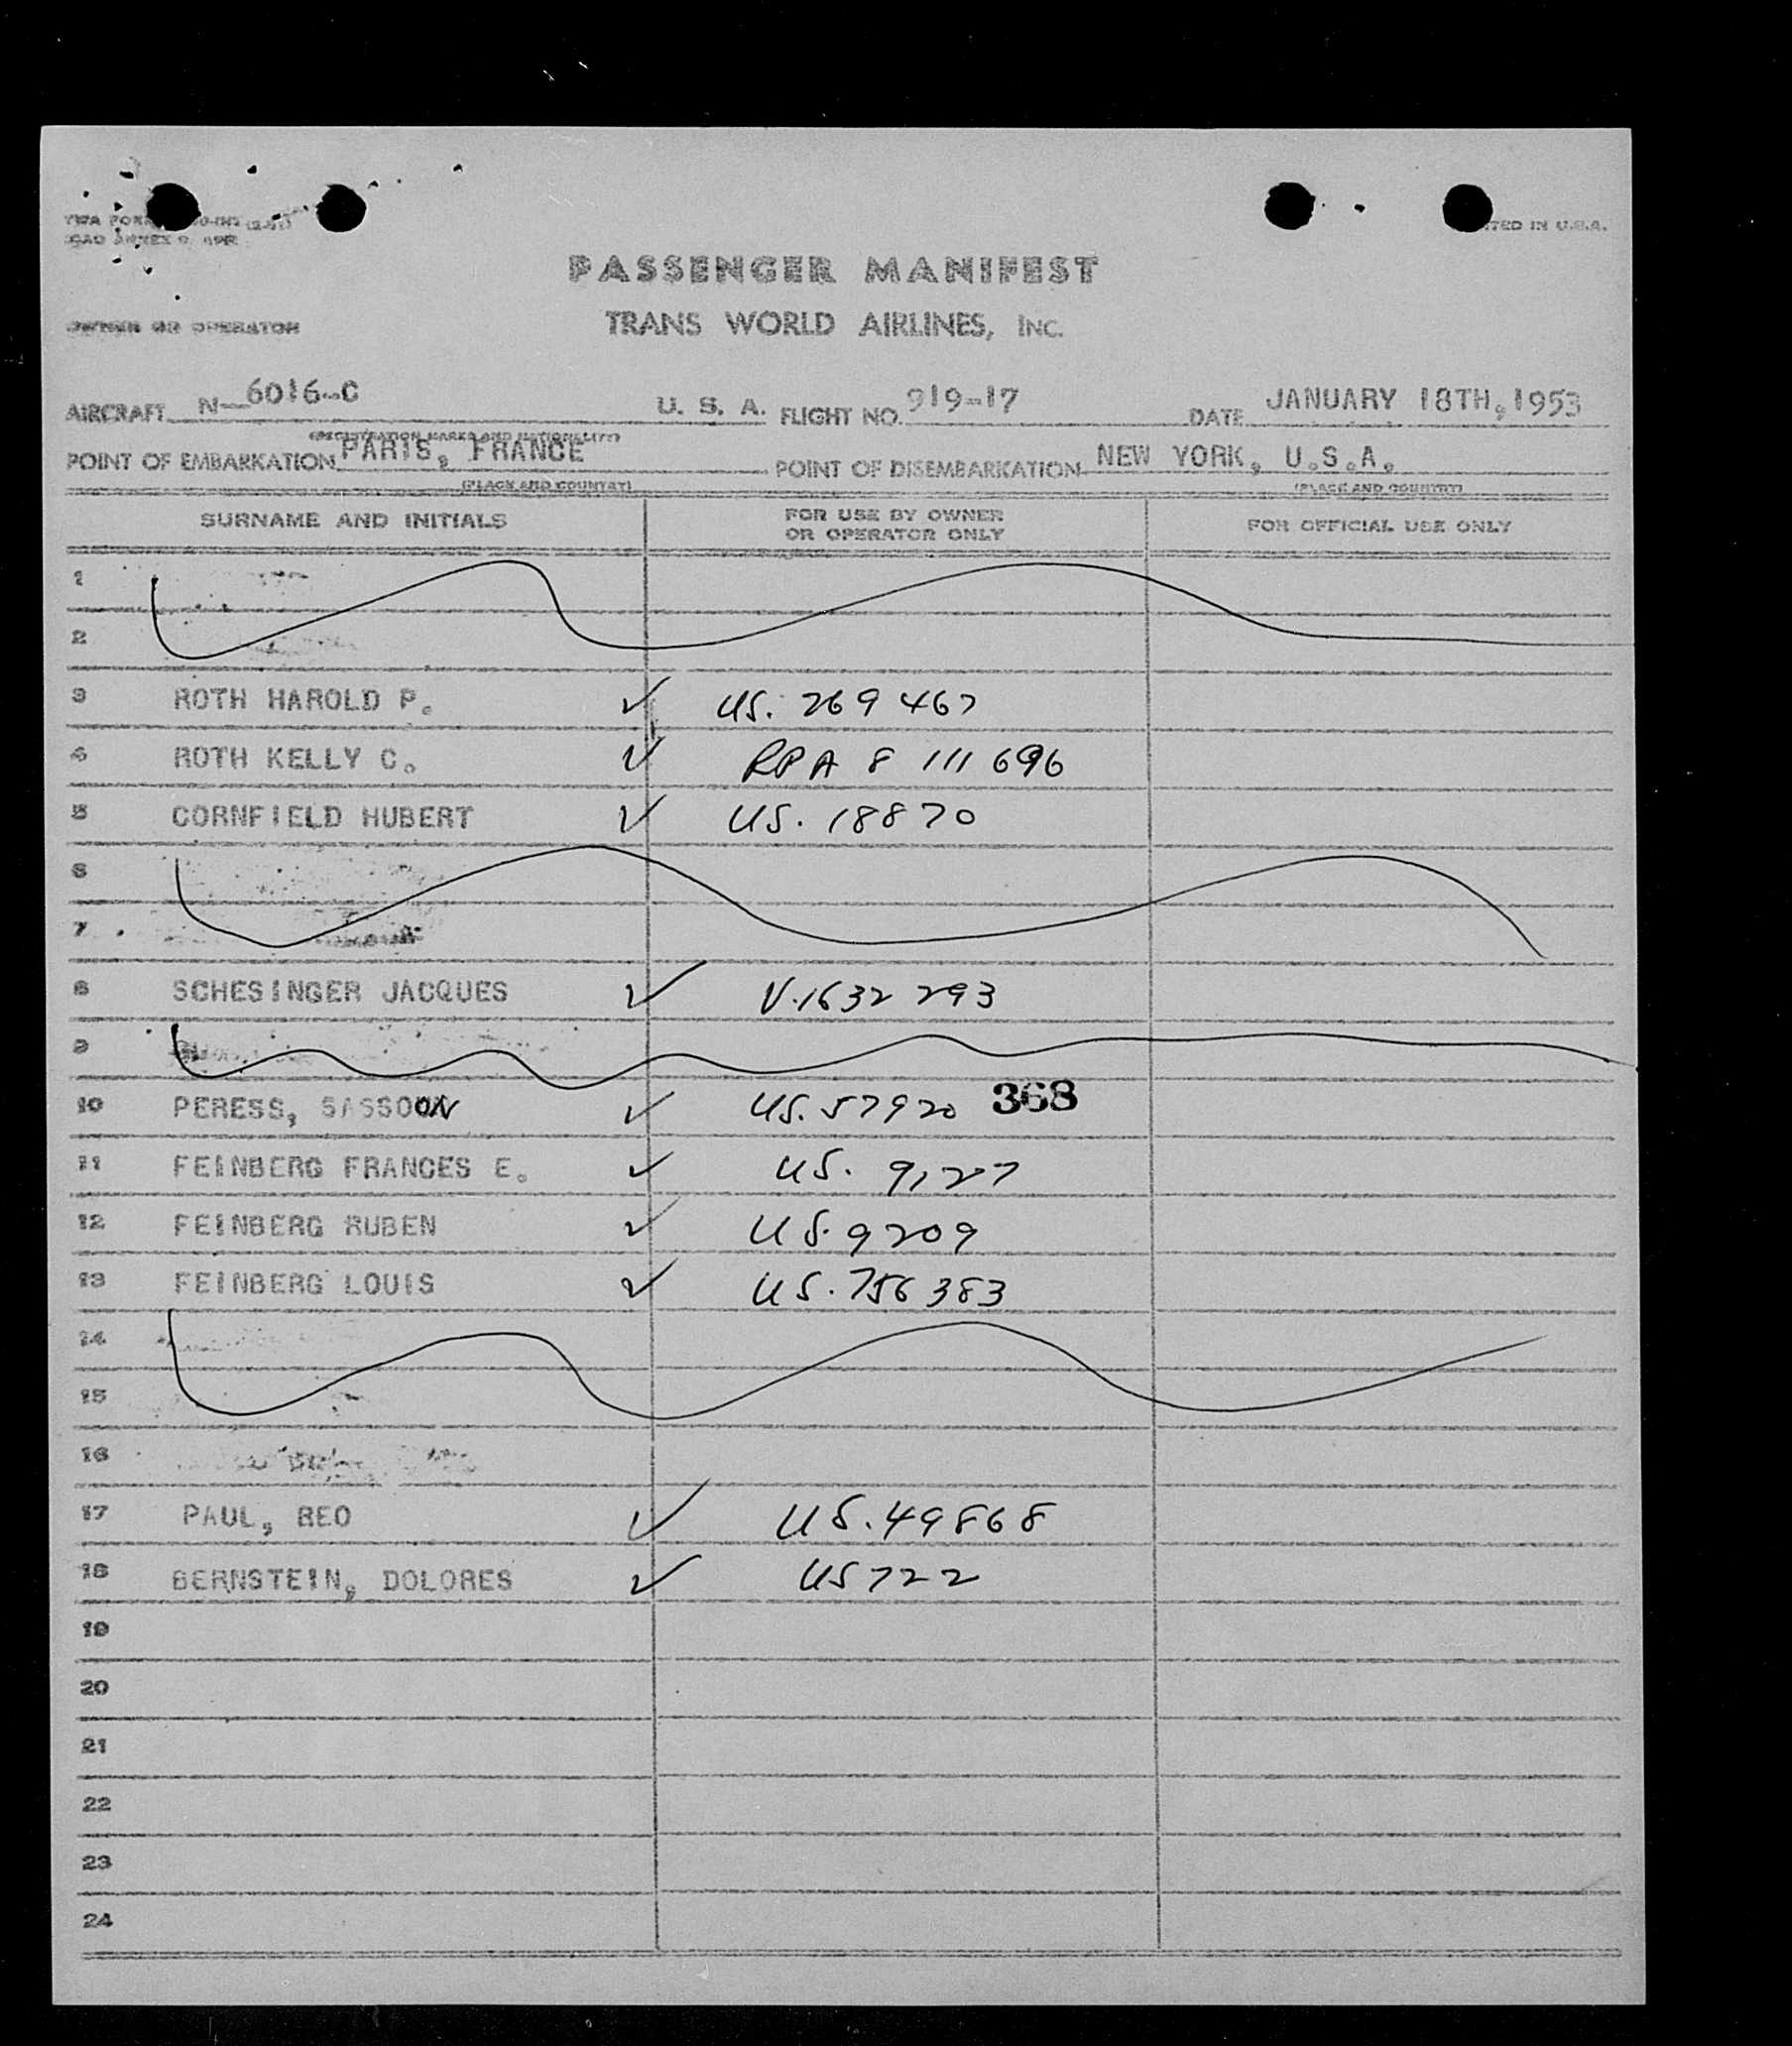 PASSENGER MANIFEST
OWNER OR OPERATOR TRANS WORLD AIRLINES, INC.
AIRCRAFT N-6016-C U. S. A. FLIGHT NO. 919-17 DATE JANUARY 18TH, 1953
(REGISTRATION MARKS AND NATIONALITY)
POINT OF EMBARKATION PARIS, FRANCE POINT OF DISEMBARKATION NEW YORK, U.S.A.
(PLACE AND COUNTRY) (PLACE AND COUNTRY)
SURNAME AND INITIALS FOR USE BY OWNER OR OPERATOR ONLY FOR OFFICIAL USE ONLY
1
2
3 ROTH HAROLD P. ✓ US. 269 467
4 ROTH KELLY C. ✓ RPA 8 111 696
5 CORNFIELD HUBERT ✓ US. 18870
6
7
8 SCHESINGER JACQUES ✓ V.1632 293
9
10 PERESS, SASSOON ✓ US. 57920 368
11 FEINBERG FRANCES E. ✓ US. 9,27
12 FEINBERG RUBEN ✓ US. 9209
13 FEINBERG LOUIS ✓ US. 756 383
14
15
16
17 PAUL, REO ✓ US. 49868
18 BERNSTEIN, DOLORES ✓ US 722
19
20
21
22
23
24